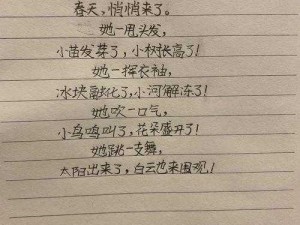 春天,悄悄来了。
她一甩头发,
小苗发芽了,小树长高了!
她一挥衣袖,
冰块融化了,小河解冻了!
她吹一口气,
小鸟鸣叫了,花朵盛开了!
她跳一支舞,
太阳出来了,白云也来围观!